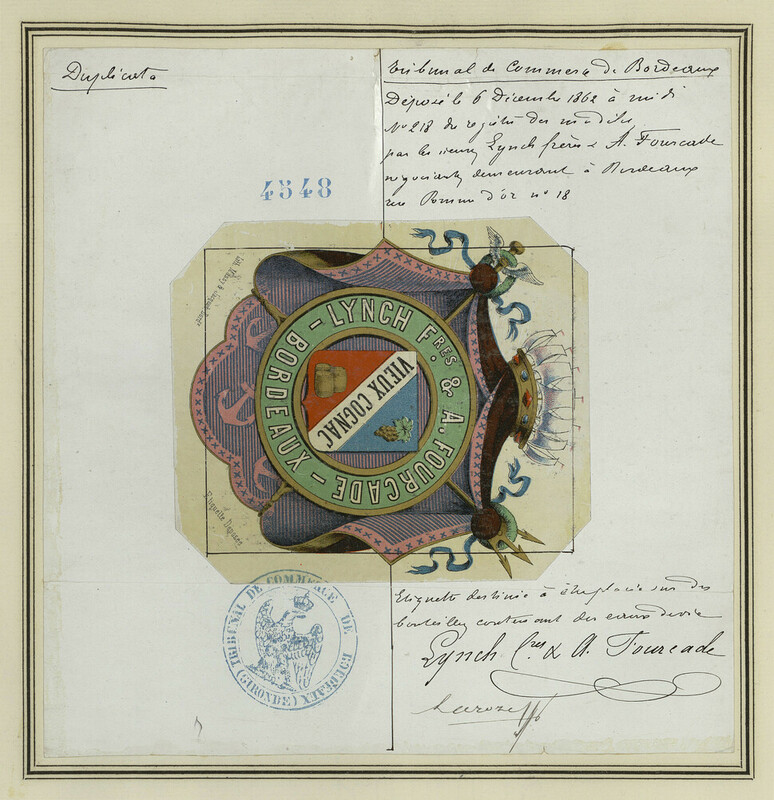 Duplicata
Tribunal de Commerce de Bordeaux
Déposé le 6 Décembre 1862 à midi
No 218 du registre des modèles
par les sieurs Lynch frères & A. Fourcade
négociants demeurant à Bordeaux
rue Pomme d'or no 18
4548
LYNCH FRES. & A. FOURCADE – BORDEAUX –
VIEUX COGNAC
Etiquette Déposée
TRIBUNAL DE COMMERCE DE BORDEAUX
(GIRONDE)
Etiquette destinée à être placée sur des
bouteilles contenant des eaux de vie
Lynch fres & A. Fourcade